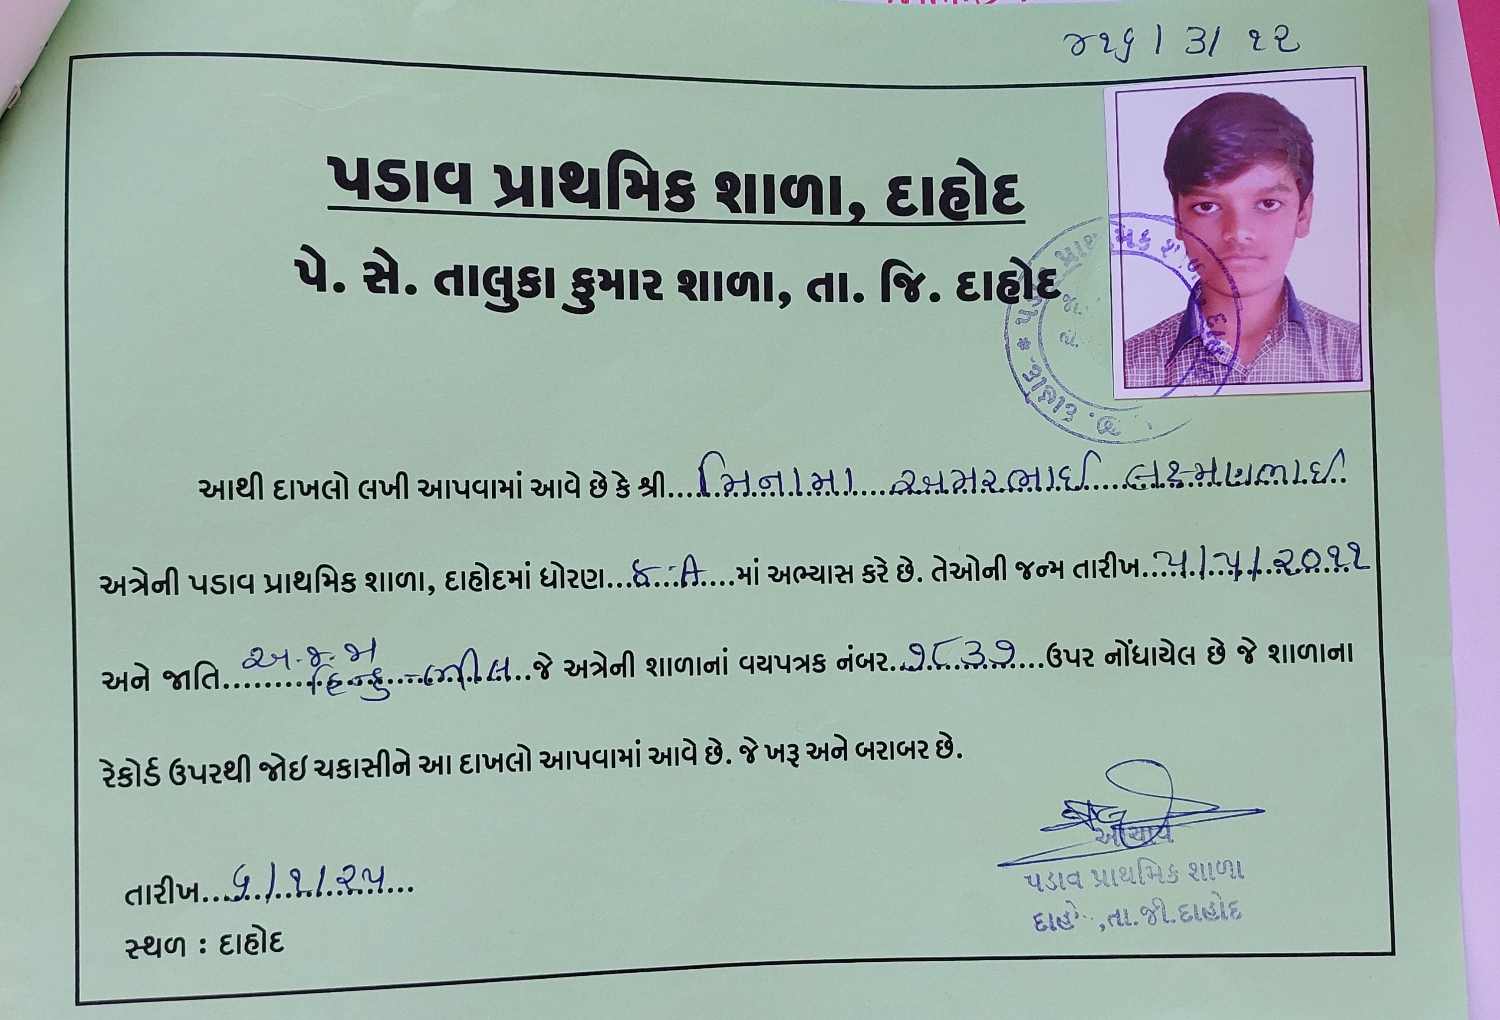 ૪૨૬ / ૩ / ૧૨
પડાવ પ્રાથમિક શાળા, દાહોદ
પે. સે. તાલુકા કુમાર શાળા, તા. જિ. દાહોદ
આથી દાખલો લખી આપવામાં આવે છે કે શ્રી....મિનામા....અમરભાઈ....લક્ષ્મણભાઈ
અત્રેની પડાવ પ્રાથમિક શાળા, દાહોદમાં ધોરણ...૮-A....માં અભ્યાસ કરે છે. તેઓની જન્મ તારીખ...૫/૫/૨૦૧૧
અ.જ.જા
અને જાતિ..........હિન્દુ-ભીલ..જે અત્રેની શાળાનાં વયપત્રક નંબર..૭૮૩૭....ઉપર નોંધાયેલ છે જે શાળાના
રેકોર્ડ ઉપરથી જોઈ ચકાસીને આ દાખલો આપવામાં આવે છે. જે ખરૂ અને બરાબર છે.
આચાર્ય
પડાવ પ્રાથમિક શાળા
દાહોદ,તા.જી.દાહોદ
તારીખ...૬/૧/૨૫...
સ્થળ : દાહોદ